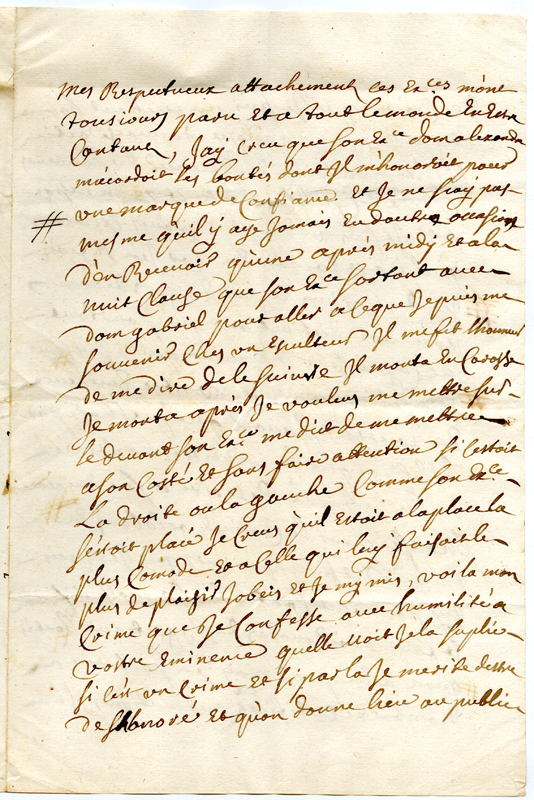 mes Respectueux attachement ces Exces m'ont
tousiours paru Et a tout le monde En Estre
Contant, J'ay creu que son Exce dom alexandre
m'acordoit ses bontés dont Jl m'honoroit pour
une marque de Confiance. Et Je ne sçay pas
# mesme qu'il y aye Jamais Eu d'autre occasion
d'en Recevoir qu'une après midy Et a la
nuit Clause que son Exce sortant avec
dom gabriel pour aller a ce que Je puis me
souvenir Ches un Esculteur Jl me fit l'honneur
de me dire de le suivre Jl monta En Carosse
Je monta après Je voulus me mettre sur
le devant son Exce me dict de me mettre
a son costé Et sans faire attention si c'estoit
La droite ou la gauche Comme son Exce
s'estoit placé Je Creus qu'il Estoit a la place la
plus Comode Et a Celle qui luy faisoit le
plus de plaisir J'obeis Et Je my mis, voila mon
Crime que Je Confesse avec humilité a
vostre Eminence quelle voit Je la suplie
si c'est un Crime Et si par la Je merite destre
deshonoré Et qu'on donne lieu au public